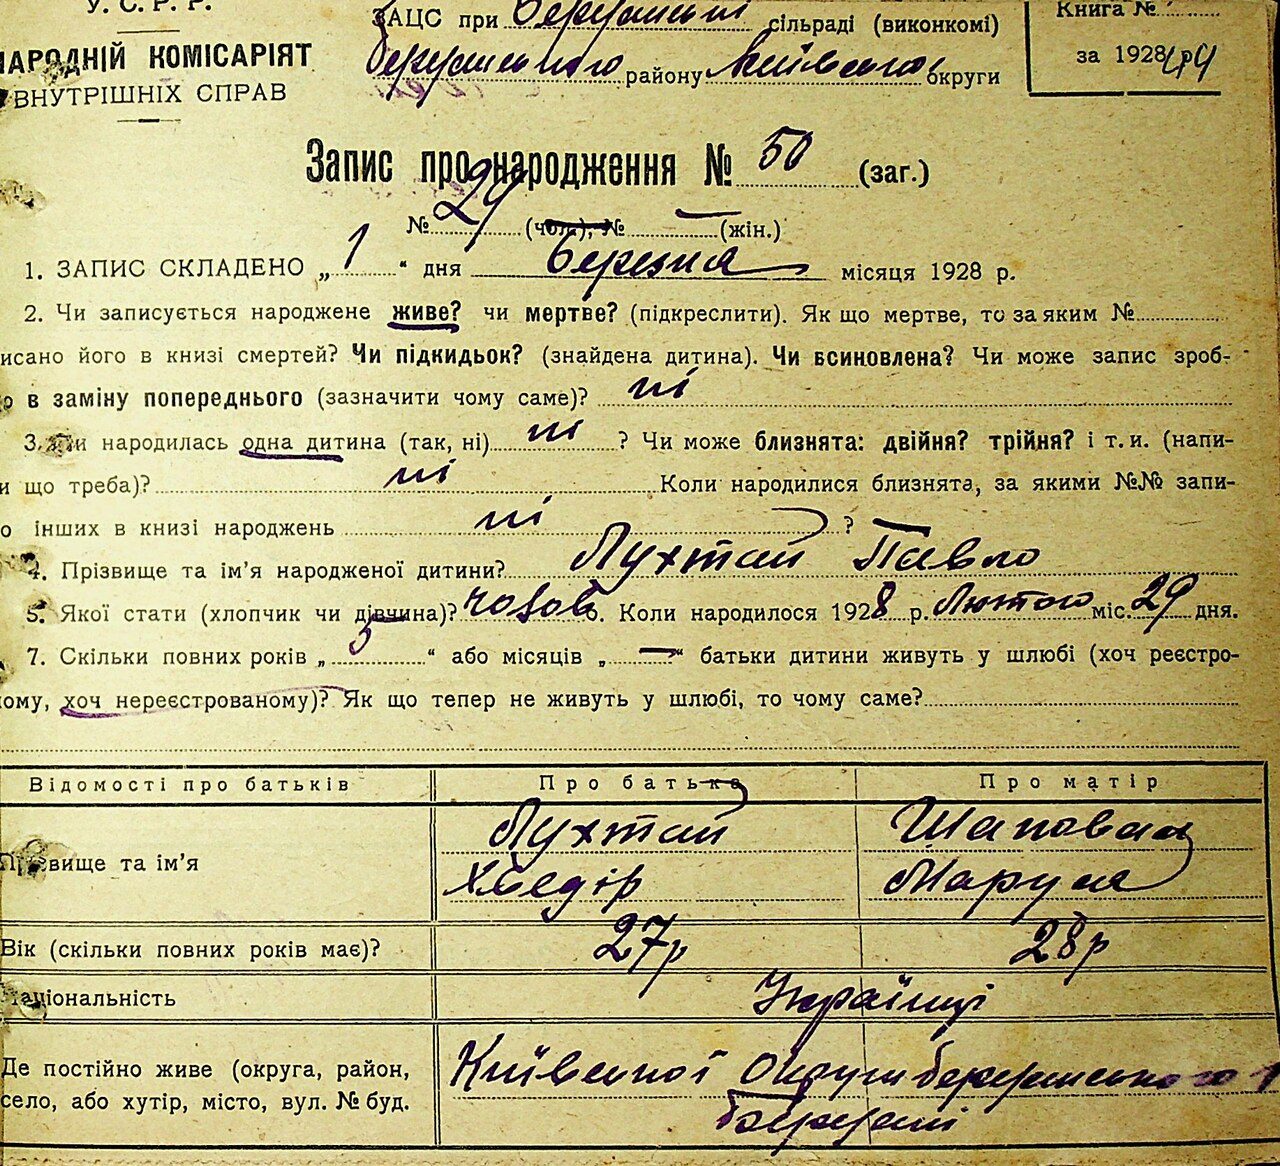 У. С. Р. Р.
НАРОДНІЙ КОМІСАРІЯТ
ВНУТРІШНІХ СПРАВ
ЗАЦС при сільраді (виконкомі)
району Київсько округи
Книга №
за 1928
Запис про народження № 50 (заг.)
№ 29 (чол.), № — (жін.)
1. ЗАПИС СКЛАДЕНО „ 1 “ дня березня місяця 1928 р.
2. Чи записується народжене живе? чи мертве? (підкреслити). Як що мертве, то за яким №
исано його в книзі смертей? Чи підкидьок? (знайдена дитина). Чи всиновлена? Чи може запис зроб-
о в заміну попереднього (зазначити чому саме)? ні
3. Чи народилась одна дитина (так, ні) ні ? Чи може близнята: двійня? трійня? і т. и. (напи-
и що треба)? ні Коли народилися близнята, за якими №№ запи-
о інших в книзі народжень ні ?
4. Прізвище та ім’я народженої дитини? Лухтай Павло
5. Якої стати (хлопчик чи дівчина)? 6. Коли народилося 1928 р. Лютого міс. 29 дня.
7. Скільки повних років „ 5 “ або місяців „ — “ батьки дитини живуть у шлюбі (хоч реєстро-
ому, хоч нереєстрованому)? Як що тепер не живуть у шлюбі, то чому саме?
Відомості про батьків Про батька Про матір
Прізвище та ім’я Лухтай Шаповал
Хведір Маруся
Вік (скільки повних років має)? 27 р 28 р
Національність Українці
Де постійно живе (округа, район, Київської округи
село, або хутір, місто, вул. № буд.